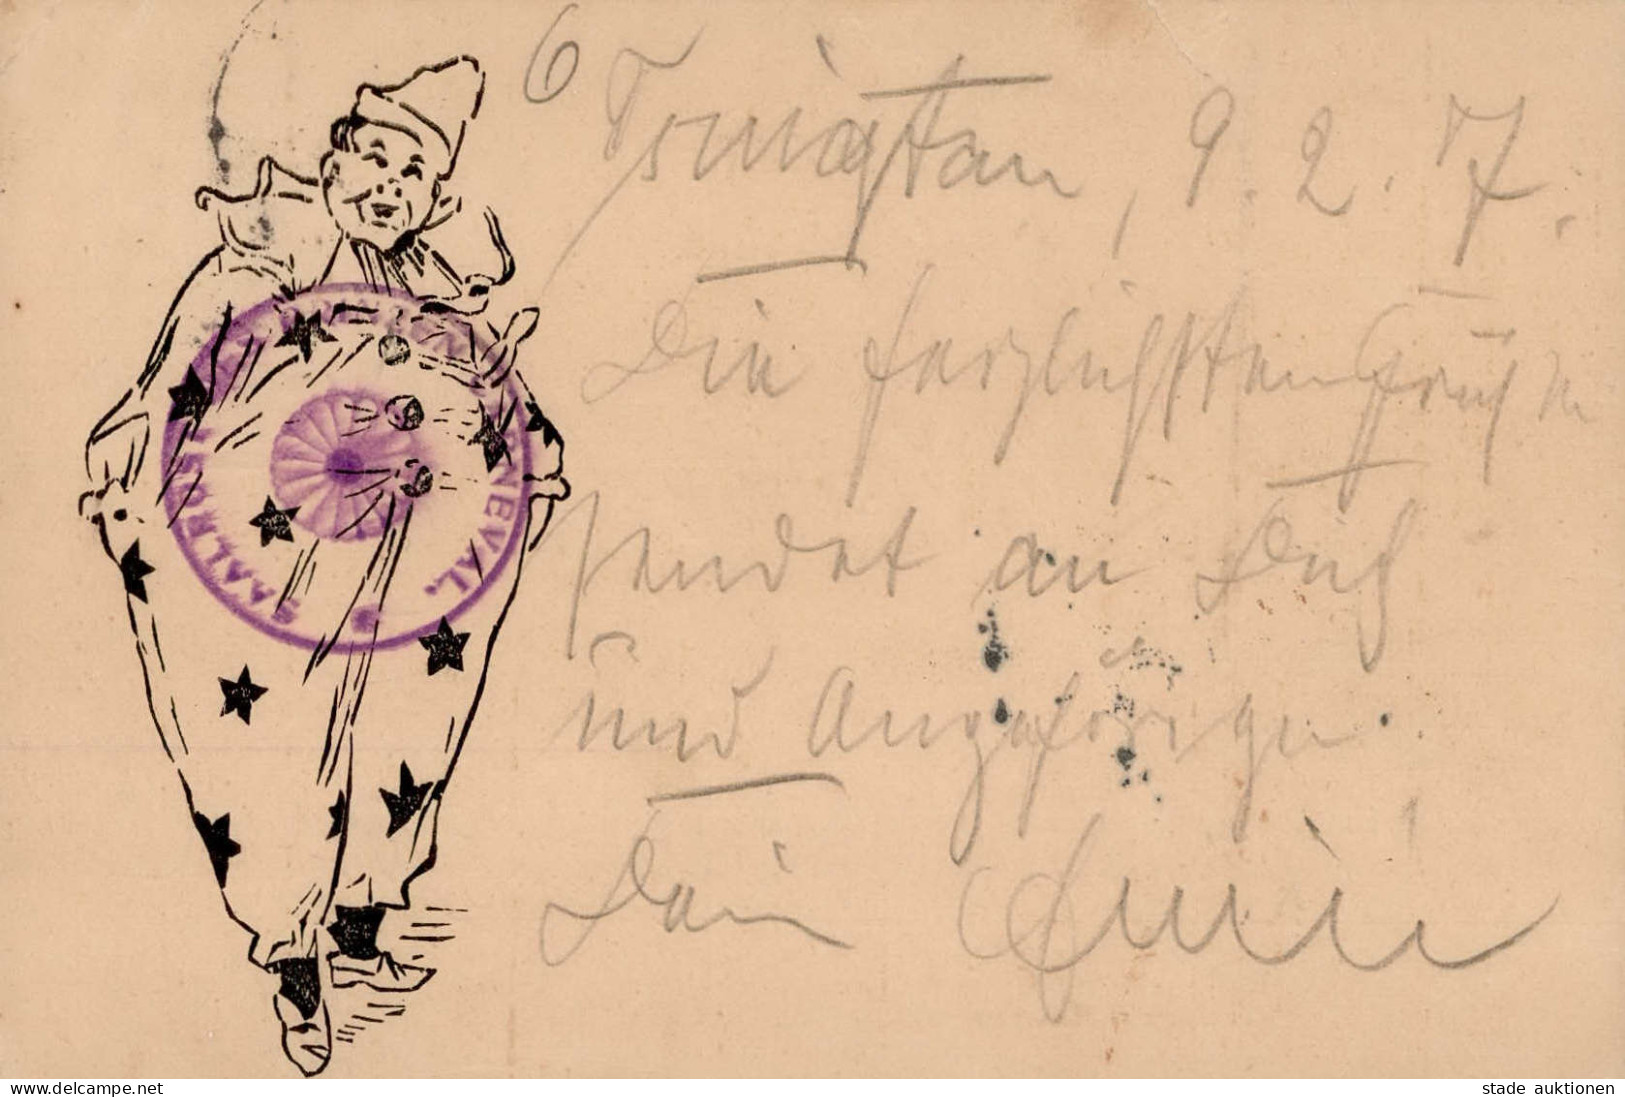 6 Tsingtau, 9.2.07.
Die herzlichsten Grüße
sendet an Dich
und Angehörige
Dein
CARNEVAL.
www.delcampe.net
stade auktionen